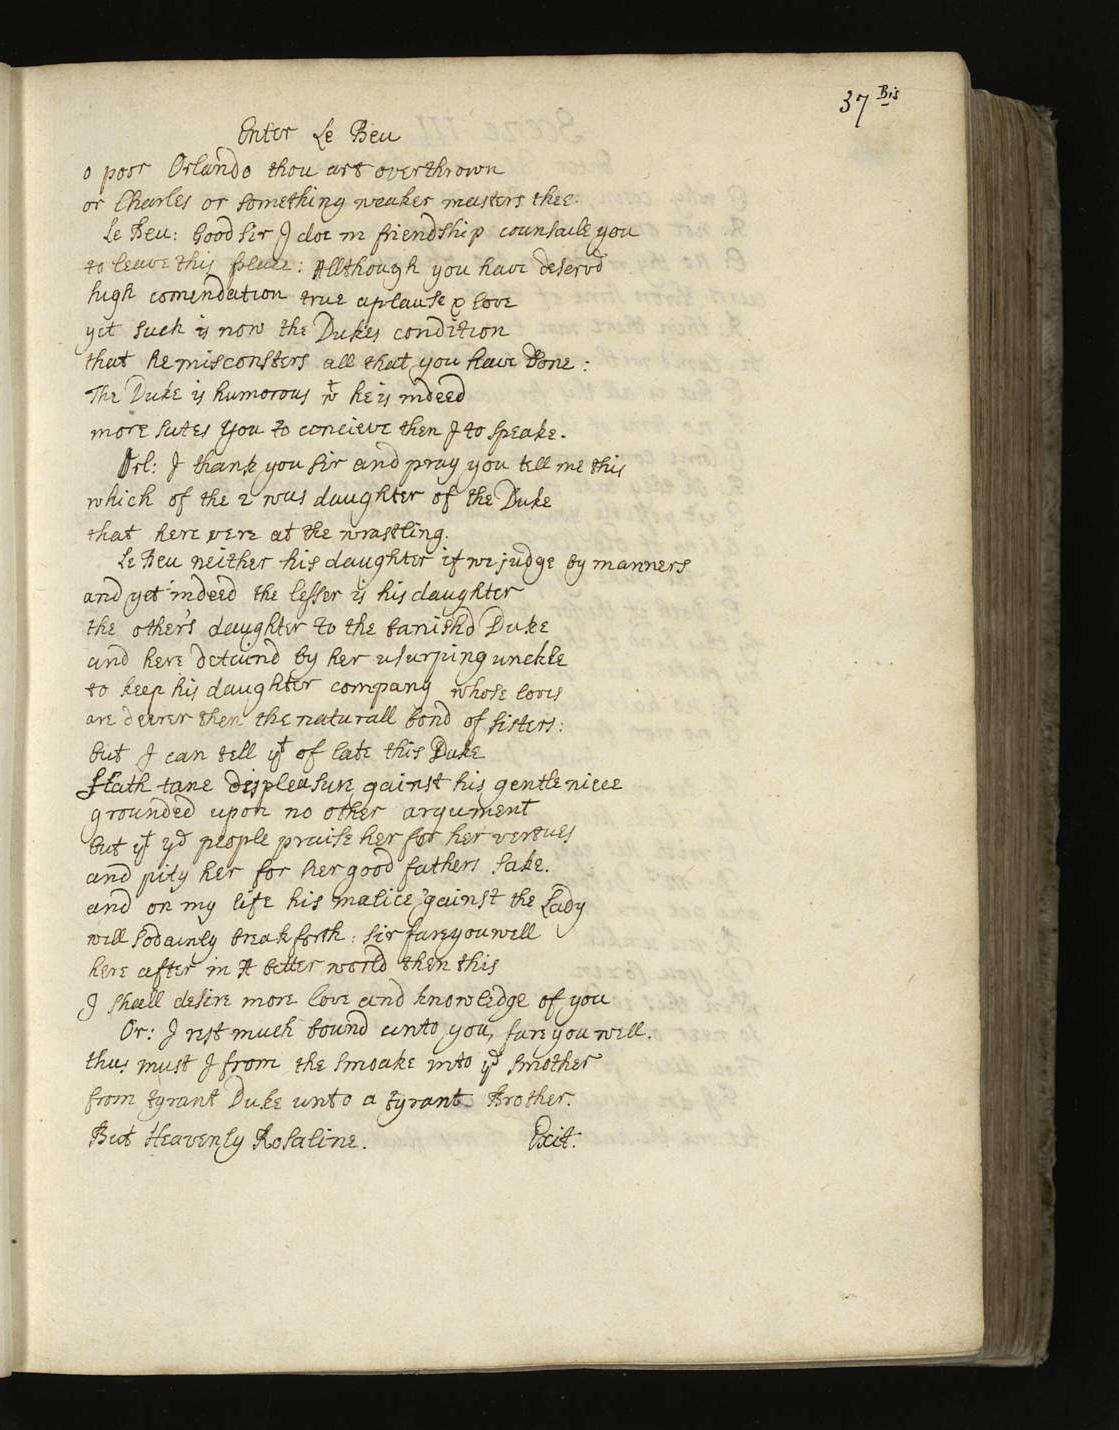 37 Bis
Enter Le Beu
o poor Orlando thou art overthrown
or Charles or something weaker masters thee.
Le Beu: Good Sir I doe in friendship counsaile you
to leave this place: Allthough you have deservd
high comendation true aplause & love
yet such is now the Dukes condition
that he misconsters all that you have done:
The Duke is humorous wt he is indeed
more sutes you to concieve then I to speake.
Orl: I thank you Sir and pray you tell me this
which of the 2 was daughter of the Duke
that here were at the wrastling.
Le Beu neither his daughter if we judge by manners
and yet indeed the lesser is his daughter
the other's daughter to the banishd Duke
and here detaind by her usurping unckle
to keep his daughter company whose loves
are deerer then the naturall bond of sisters:
but I can tell yt of late this Duke
Hath tane displeasure gainst his gentle niece
grounded upon no other argument
but yt ye people praise her for her vertues
and pity her for her good fathers sake.
and on my life his malice 'gainst the Lady
will sodainly break forth: Sir fare you well
here after in A better world then this
I shall desire more love and knowledge of you
Or: I rest much bound unto you, fare you well.
thus must I from the smoake into ye smother
from tyrant Duke unto a tyrant Brother.
But Heavenly Rosaline. Exit.